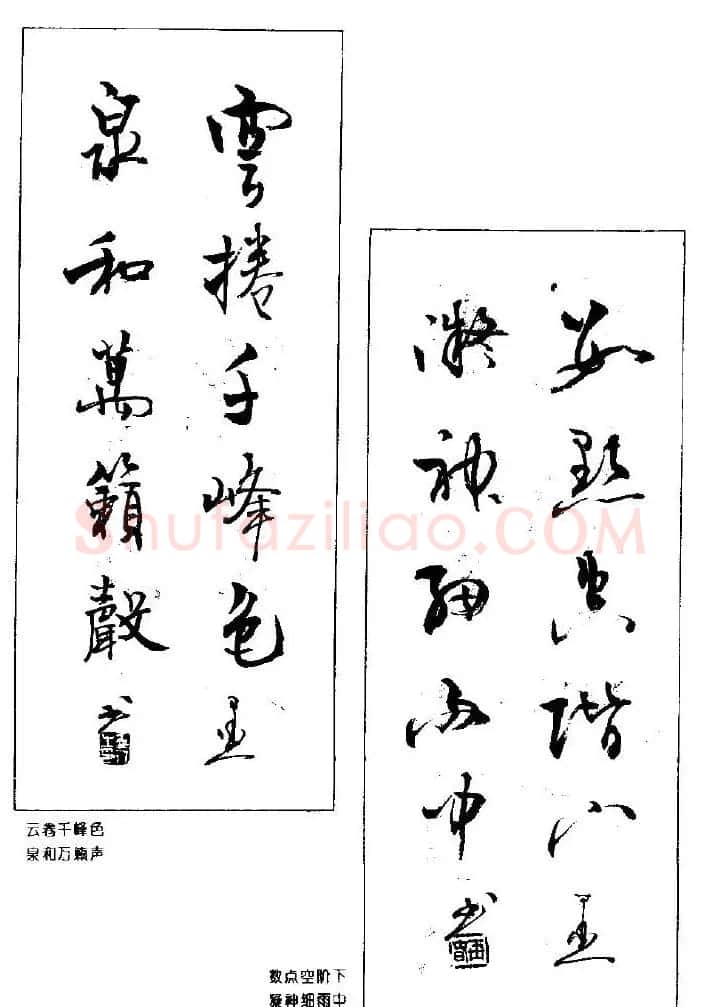 雲捲千峰色
泉和萬籟聲
书
云卷千峰色
泉和万籁声
数點空階下
凝神細雨中
书
数点空阶下
凝神细雨中
Shufaziliao.COM